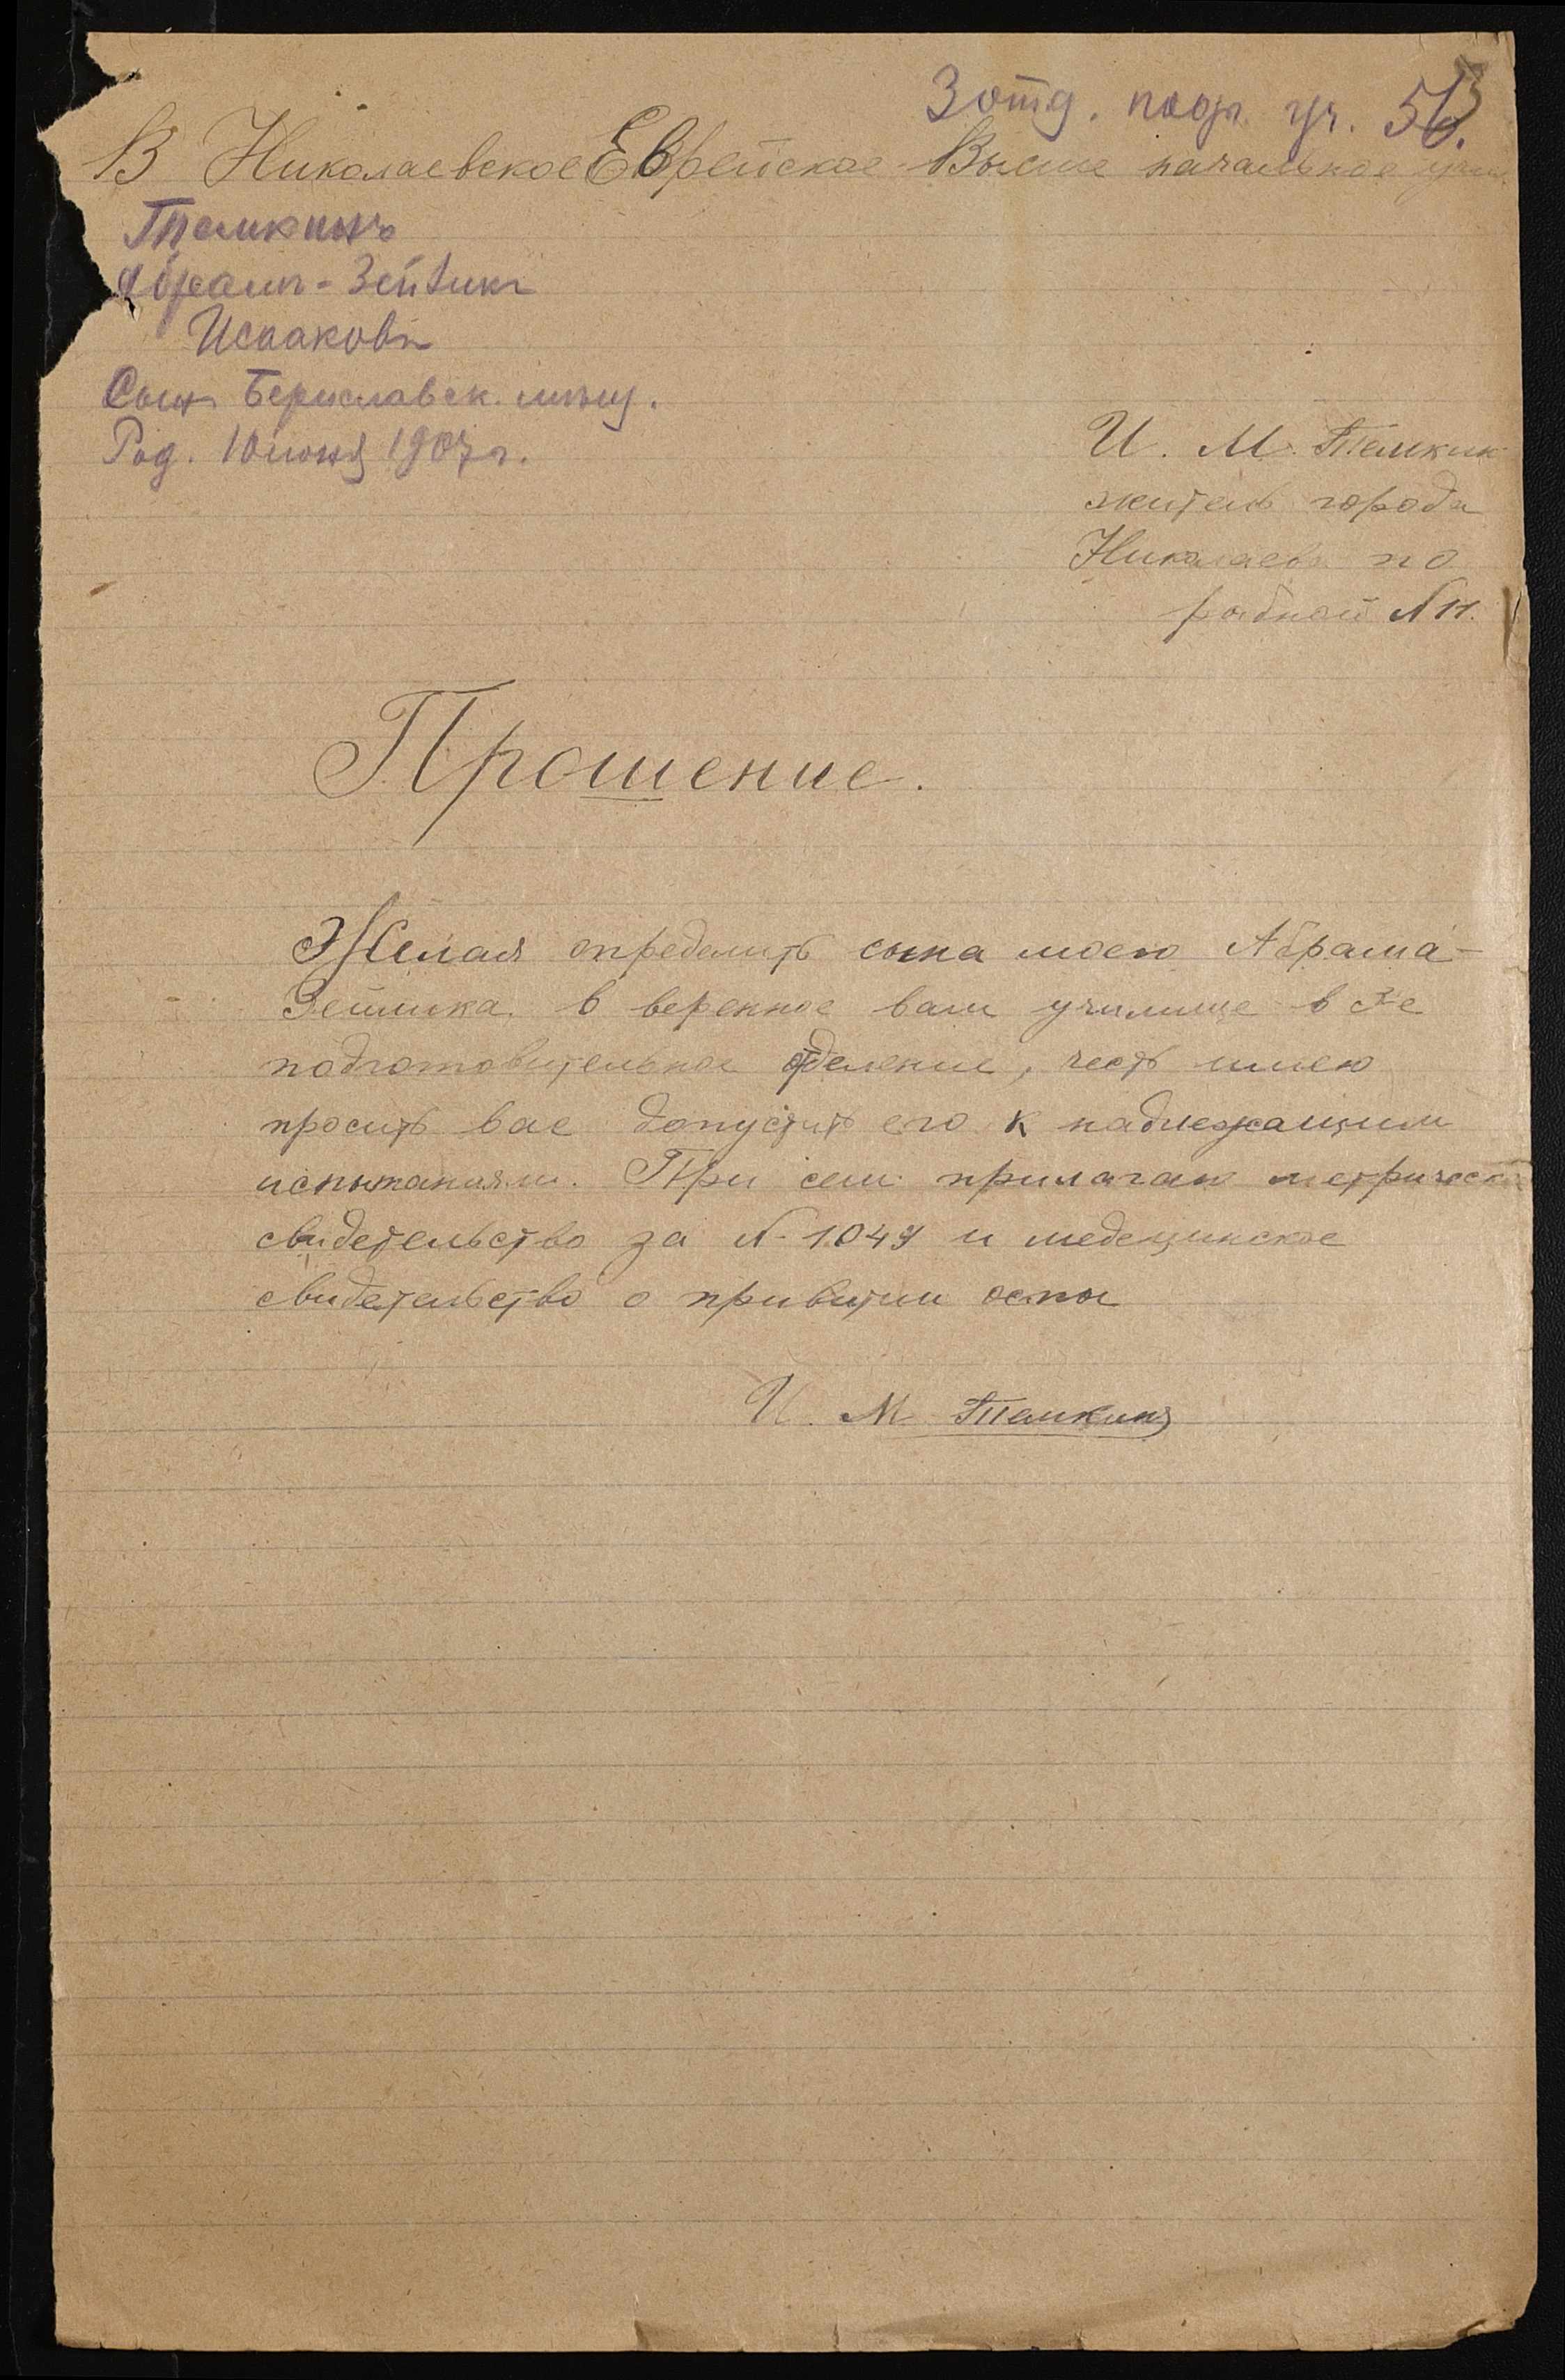 3 отд. подг. уч. 53.
В Николаевское Еврейское Высше начальное учил
Темкинъ
Абрамъ-Зейликъ
Исааковъ
Сынъ Бериславск. мѣщ.
Род. 10 июня 1907 г.
И. М. Темкин
житель города
Николаева по
рыбной N 11.
Прошение.
Желая определить сына моего Абрама-
Зейлика в веренное вам училище в 3е
подготовительное отделение, честь имею
просить вас допустить его к надлежащим
испытаниям. При сем прилагаю метрическ
свидетельство за N 1049 и медецинское
свидетельство о привитии оспы
И. М Темкинъ